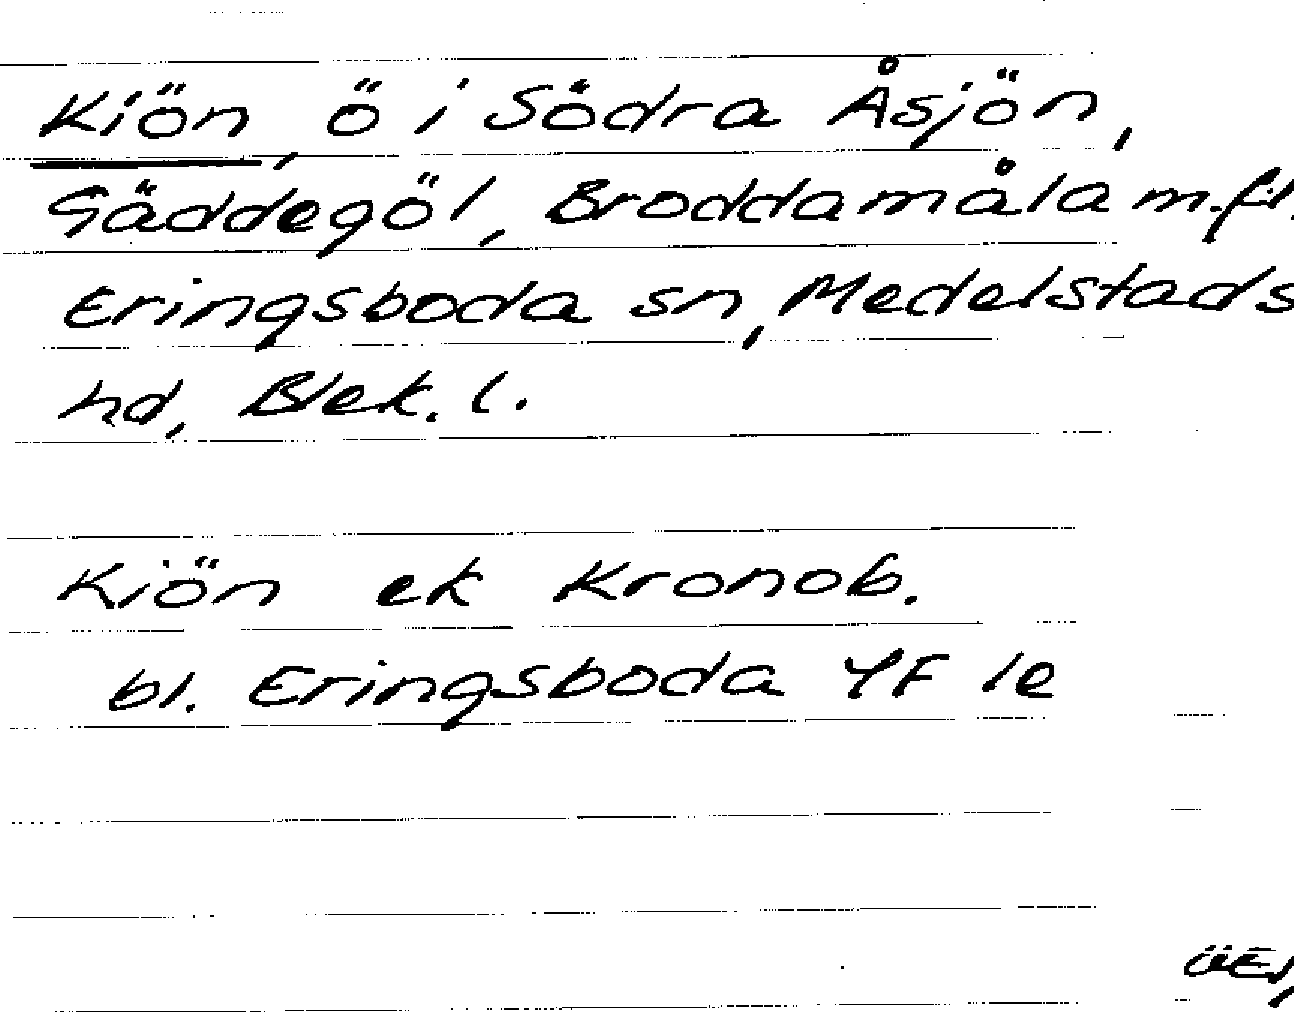 Kiön, ö i Södra Åsjön,
Gäddegöl, Broddamåla m.fl.
Eringsboda sn, Medelstads
hd, Blek. l.
Kiön ek Kronob.
bl. Eringsboda 4F 1e